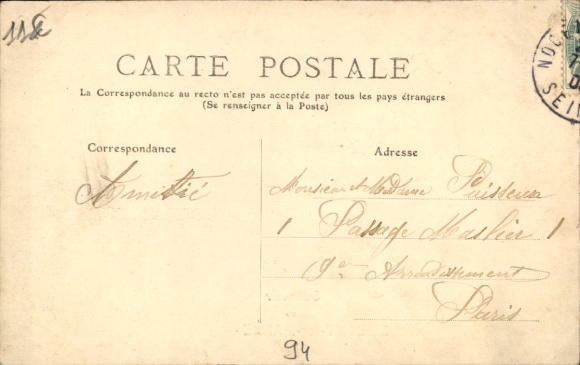 118
CARTE POSTALE
La Correspondance au recto n'est pas acceptée par tous les pays étrangers
(Se renseigner à la Poste)
Correspondance
Adresse
Amitié
Monsieur et Madame Puisseux
1 Passage Maslier 1
19e Arrondissement
Paris
94
NOGEN
7
D
SEIN